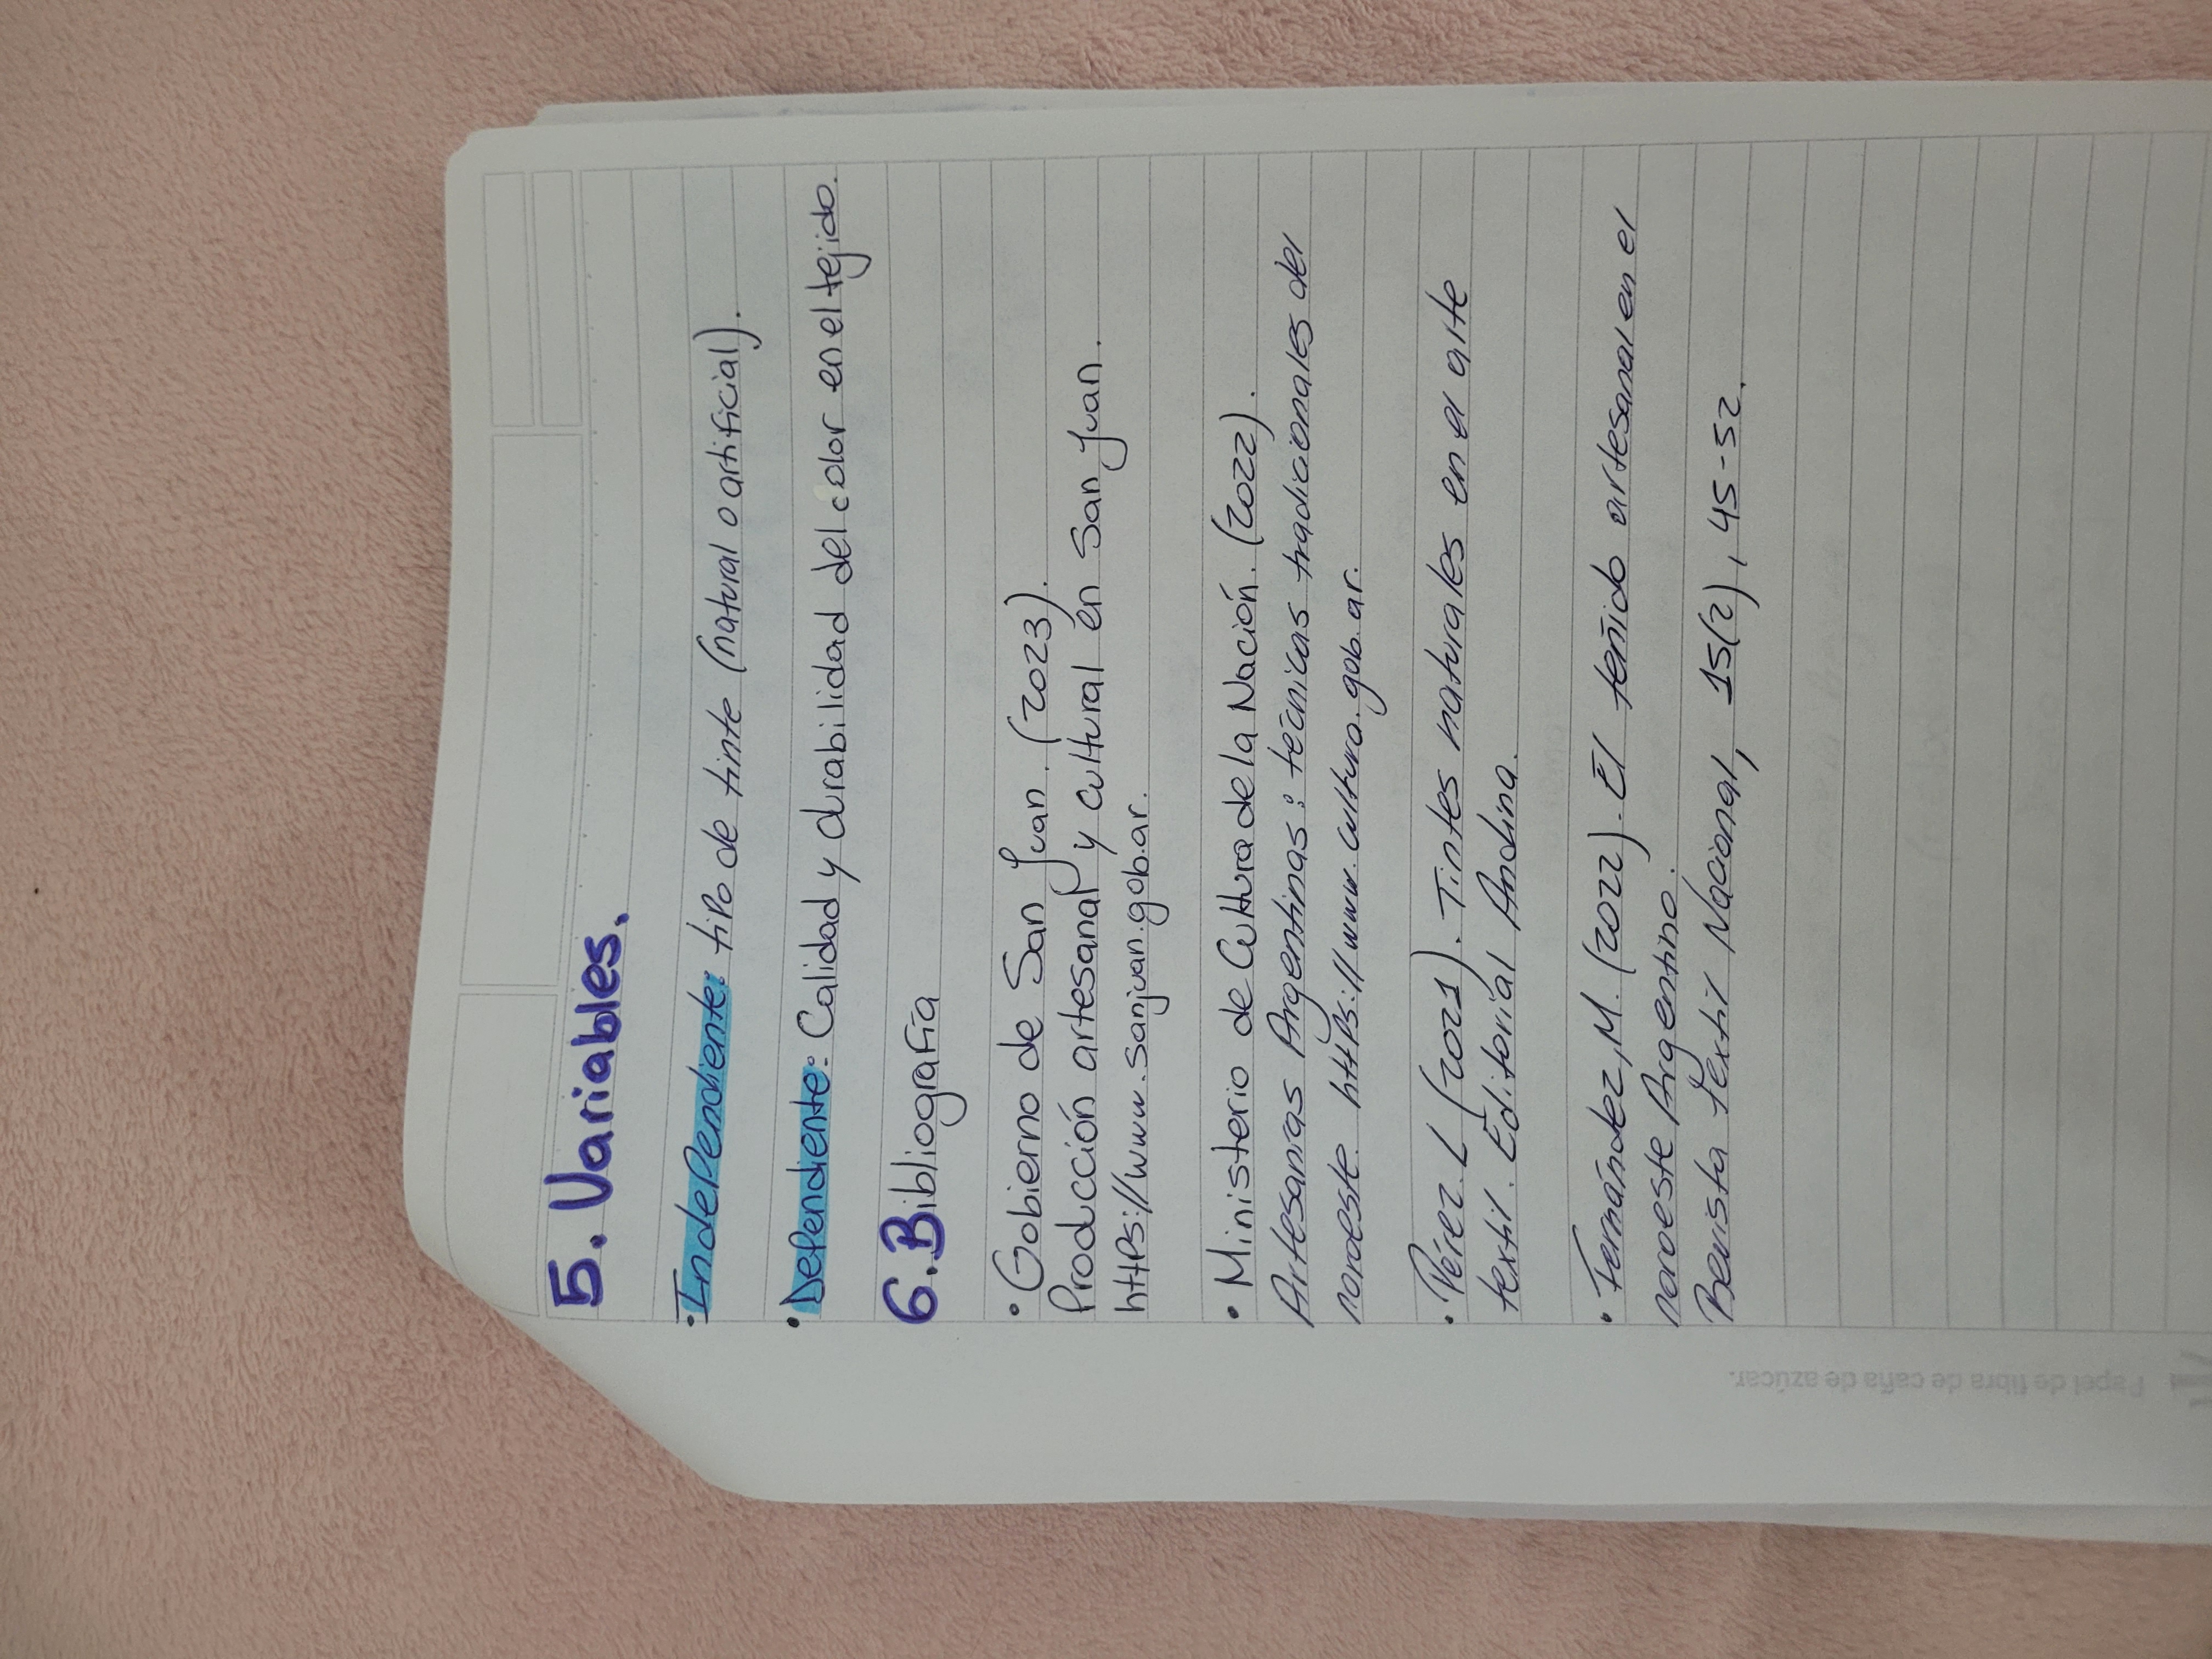 5. Variables.
• Independiente: tipo de tinte (natural o artificial).
• Dependiente: Calidad y durabilidad del color en el tejido.
6. Bibliografía
• Gobierno de San Juan. (2023).
Producción artesanal y cultural en San Juan.
https://www.sanjuan.gob.ar.
• Ministerio de Cultura de la Nación. (2022).
Artesanías Argentinas: técnicas tradicionales del
noroeste. https://www.cultura.gob.ar.
• Pérez. L (2021). Tintes naturales en el arte
textil. Editorial Andina.
• Fernández, M. (2022). El teñido artesanal en el
noroeste Argentino.
Revista Textil Nacional, 15(2), 45-52.
Papel de fibra de caña de azúcar.